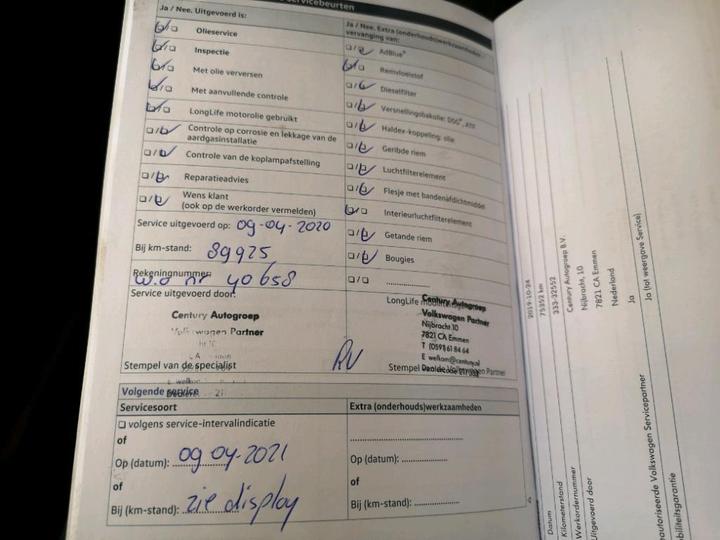 servicebeurten
Ja / Nee. Uitgevoerd is:
Olieservice
Inspectie
Met olie verversen
Met aanvullende controle
LongLife motorolie gebruikt
Controle op corrosie en lekkage van de
aardgasinstallatie
Controle van de koplampafstelling
Reparatieadvies
Wens klant
(ook op de werkorder vermelden)
Service uitgevoerd op: 09-04-2020
Bij km-stand: 89925
Rekeningnummer:
w.o nr 40658
Service uitgevoerd door:
Century Autogroep
Volkswagen Partner
Stempel van de specialist
RV
Ja / Nee. Extra (onderhouds)werkzaamheden
vervanging van:
AdBlue®
Remvloeistof
Dieselfilter
Versnellingsbakolie: DSG®, ATF
Haldex-koppeling: olie
Geribde riem
Luchtfilterelement
Flesje met bandenafdichtmiddel
Interieurluchtfilterelement
Getande riem
Bougies
LongLife
Century Autogroep
Volkswagen Partner
Nijbracht 10
7821 CA Emmen
T (0591) 61 84 64
E welkom@century.nl
Stempel van de Volkswagen Partner
Volgende service
Servicesoort
volgens service-intervalindicatie
of
Op (datum): 09 04-2021
of
Bij (km-stand): zie display
Extra (onderhouds)werkzaamheden
of
Op (datum):
of
Bij (km-stand):
Datum 2019-10-24
Kilometerstand 75352 km
Werkordernummer 333-32552
Uitgevoerd door Century Autogroep B.V.
Nijbracht, 10
7821 CA Emmen
Nederland
Volkswagen Servicepartner Ja
Ja (tot weergave Service)